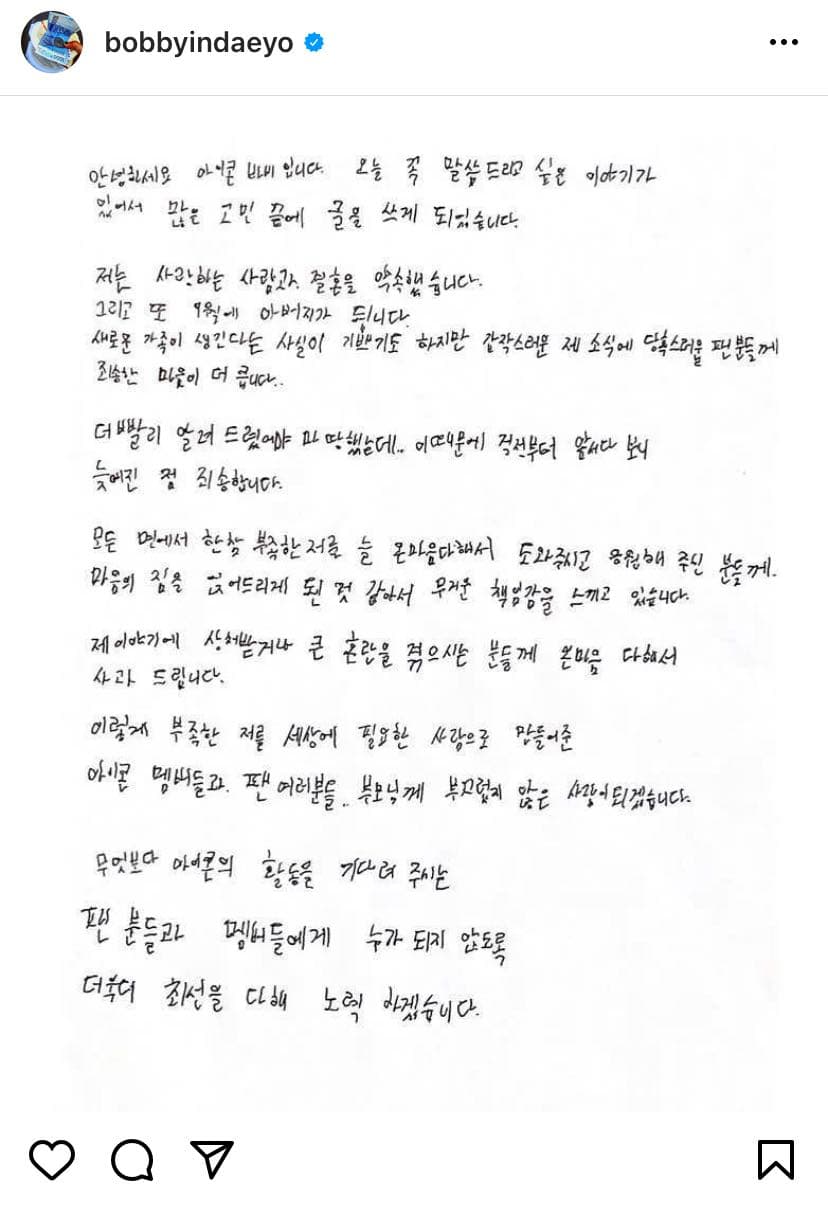 bobbyindaeyo
안녕하세요 아이콘 바비 입니다. 오늘 꼭 말씀드리고 싶은 이야기가
있어서 많은 고민 끝에 글을 쓰게 되었습니다.
저는 사랑하는 사람과 결혼을 약속했습니다.
그리고 또 9월에 아버지가 됩니다.
새로운 가족이 생긴다는 사실이 기쁘기도 하지만 갑작스러운 제 소식에 당혹스러울 팬분들께
죄송한 마음이 더 큽니다..
더 빨리 알려 드렸어야 마땅했는데.. 이 때문에 걱정부터 앞서다 보니
늦어진 점 죄송합니다.
모든 면에서 한참 부족한 저를 늘 온마음다해서 도와주시고 응원해 주신 분들께.
마음의 짐을 얹어드리게 된 것 같아서 무거운 책임감을 느끼고 있습니다.
제 이야기에 상처받거나 큰 혼란을 겪으시는 분들께 온마음 다해서
사과 드립니다.
이렇게 부족한 저를 세상에 필요한 사람으로 만들어준
아이콘 멤버들과 팬 여러분들.. 부모님께 부끄럽지 않은 사람이 되겠습니다.
무엇보다 아이콘의 활동을 기다려 주시는
팬 분들과 멤버들에게 누가 되지 않도록
더욱더 최선을 다해 노력 하겠습니다.